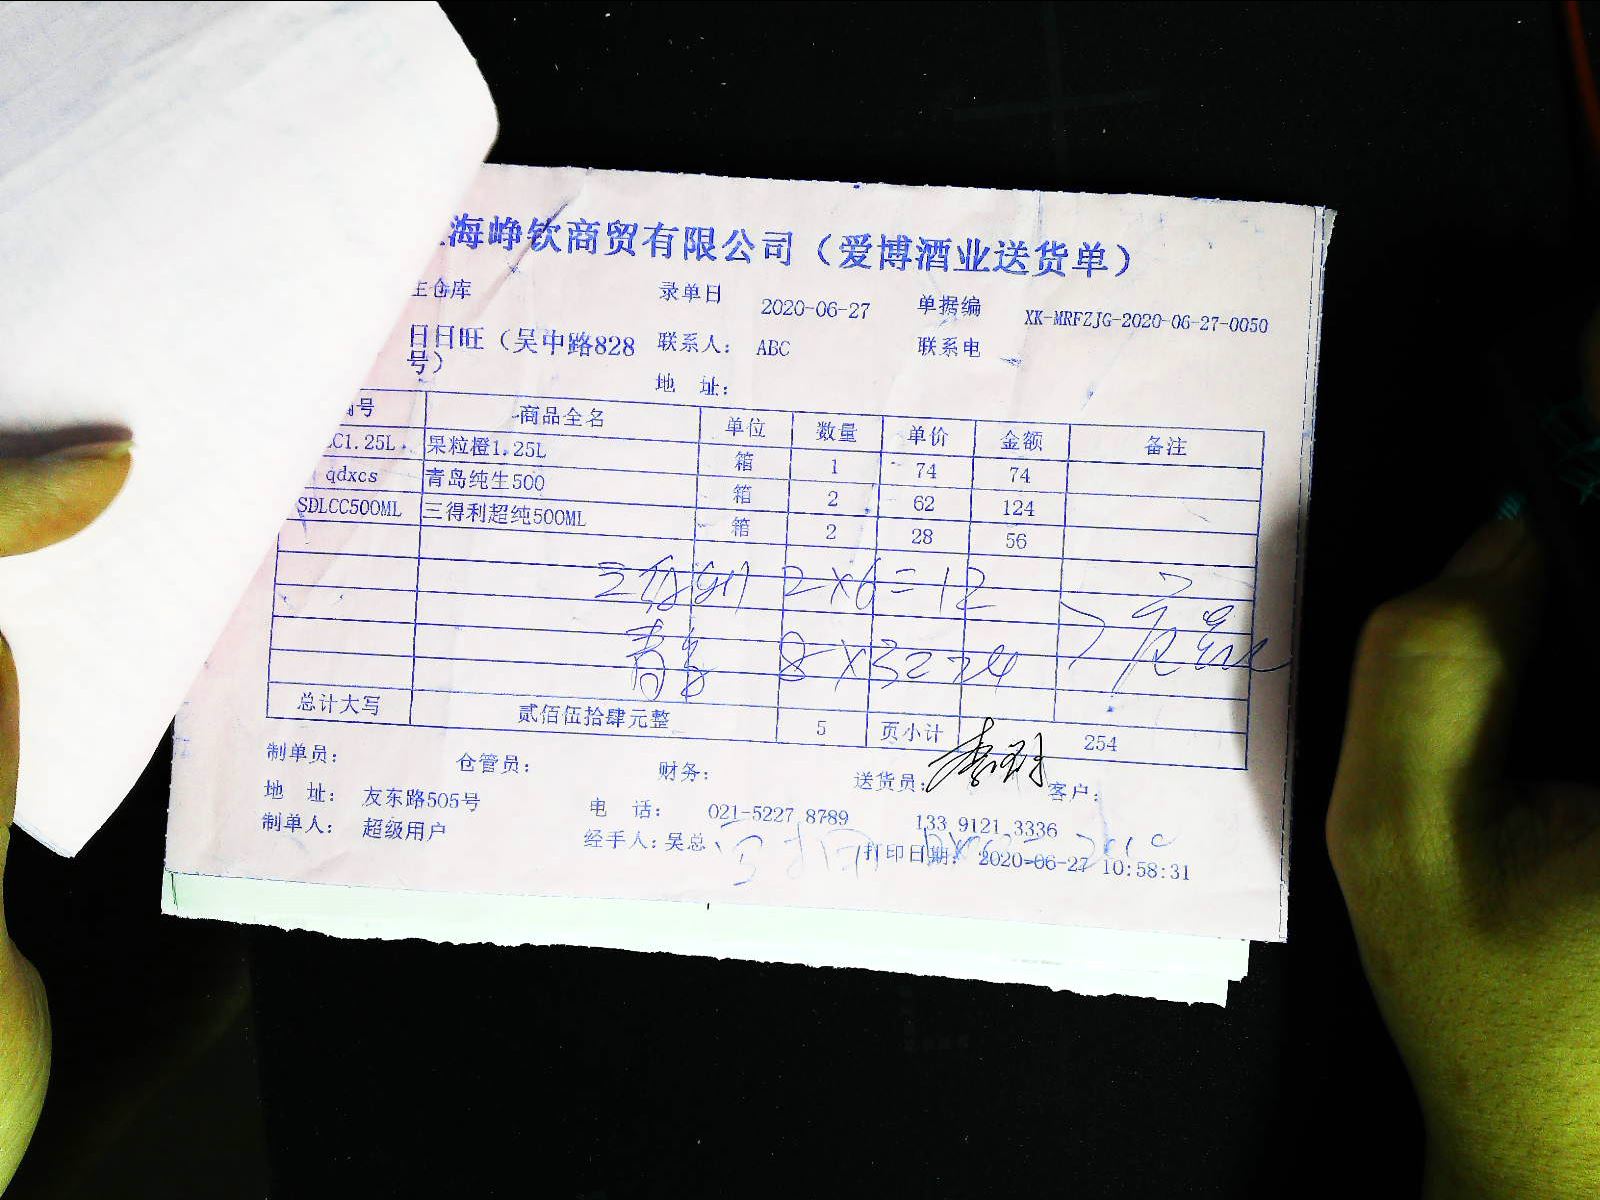 海峥钦商贸有限公司（爱博酒业送货单）
主仓库 录单日 2020-06-27 单据编 XK-MRFZJG-2020-06-27-0050
日日旺（吴中路828号） 联系人： ABC 联系电
地 址：
号 商品全名 单位 数量 单价 金额 备注
C1.25L 果粒橙1.25L 箱 1 74 74
qdxcs 青岛纯生500 箱 2 62 124
SDLCC500ML 三得利超纯500ML 箱 2 28 56
三得利 2×6=12
青岛 8×3
总计大写 贰佰伍拾肆元整 5 页小计 254
制单员： 仓管员： 财务： 送货员： 客户：
地 址： 友东路505号 电 话： 021-5227 8789 133 9121 3336
制单人： 超级用户 经手人：吴总 打印日期： 2020-06-27 10:58:31